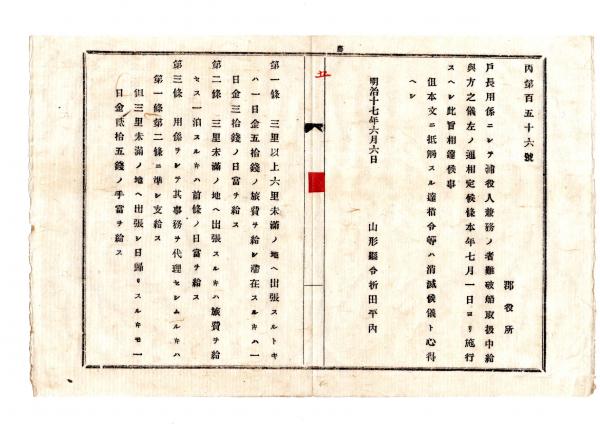 丙第百五十六號
郡役所
戸長用係ニシテ浦役人兼務ノ者難破船取扱中給
與方之儀左ノ通相定候條本年七月一日ヨリ施行
スヘシ此旨相達候事
但本文ニ抵觸スル達指令等ハ消滅候儀ト心得
ヘシ
明治十七年六月六日
山形縣令折田平内
第一條 三里以上六里未滿ノ地ヘ出張スルトキ
ハ一日金五拾錢ノ旅費ヲ給シ滯在スルキハ一
日金三拾錢ノ日當ヲ給ス
第二條 三里未滿ノ地ヘ出張スルキハ旅費ヲ給
セス一泊スルキハ前條ノ日當ヲ給ス
第三條 用係ヲシテ其事務ヲ代理セシムルキハ
第一條第二條ニ準シ支給ス
但三里未滿ノ地ヘ出張シ日歸リスルキモ一
日金貳拾五錢ノ手當ヲ給ス